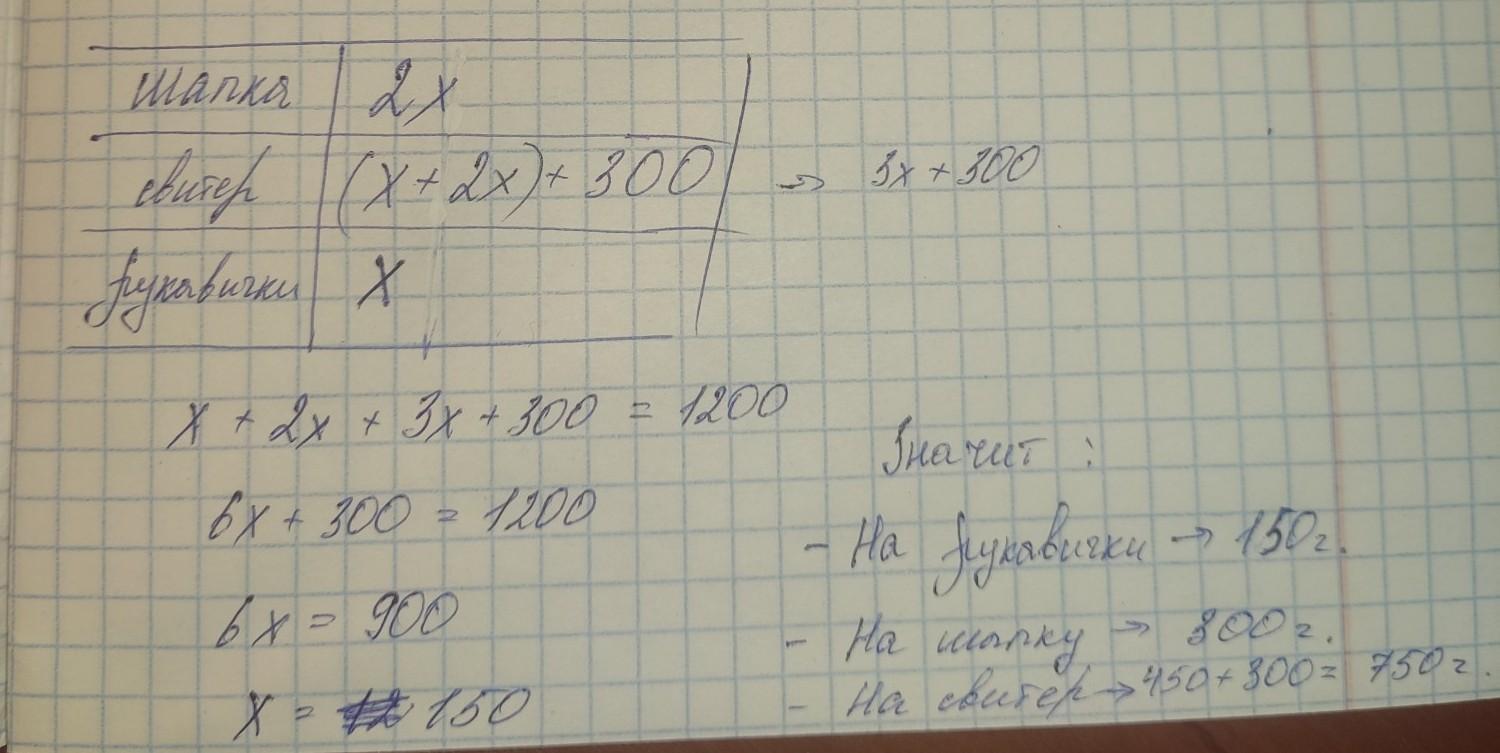 шапка 2x
свитер (x + 2x) + 300 → 3x + 300
рукавички x
x + 2x + 3x + 300 = 1200
6x + 300 = 1200
6x = 900
x = 150
Значит :
- На рукавички → 150г.
- На шапку → 300г.
- На свитер → 450 + 300 = 750г.